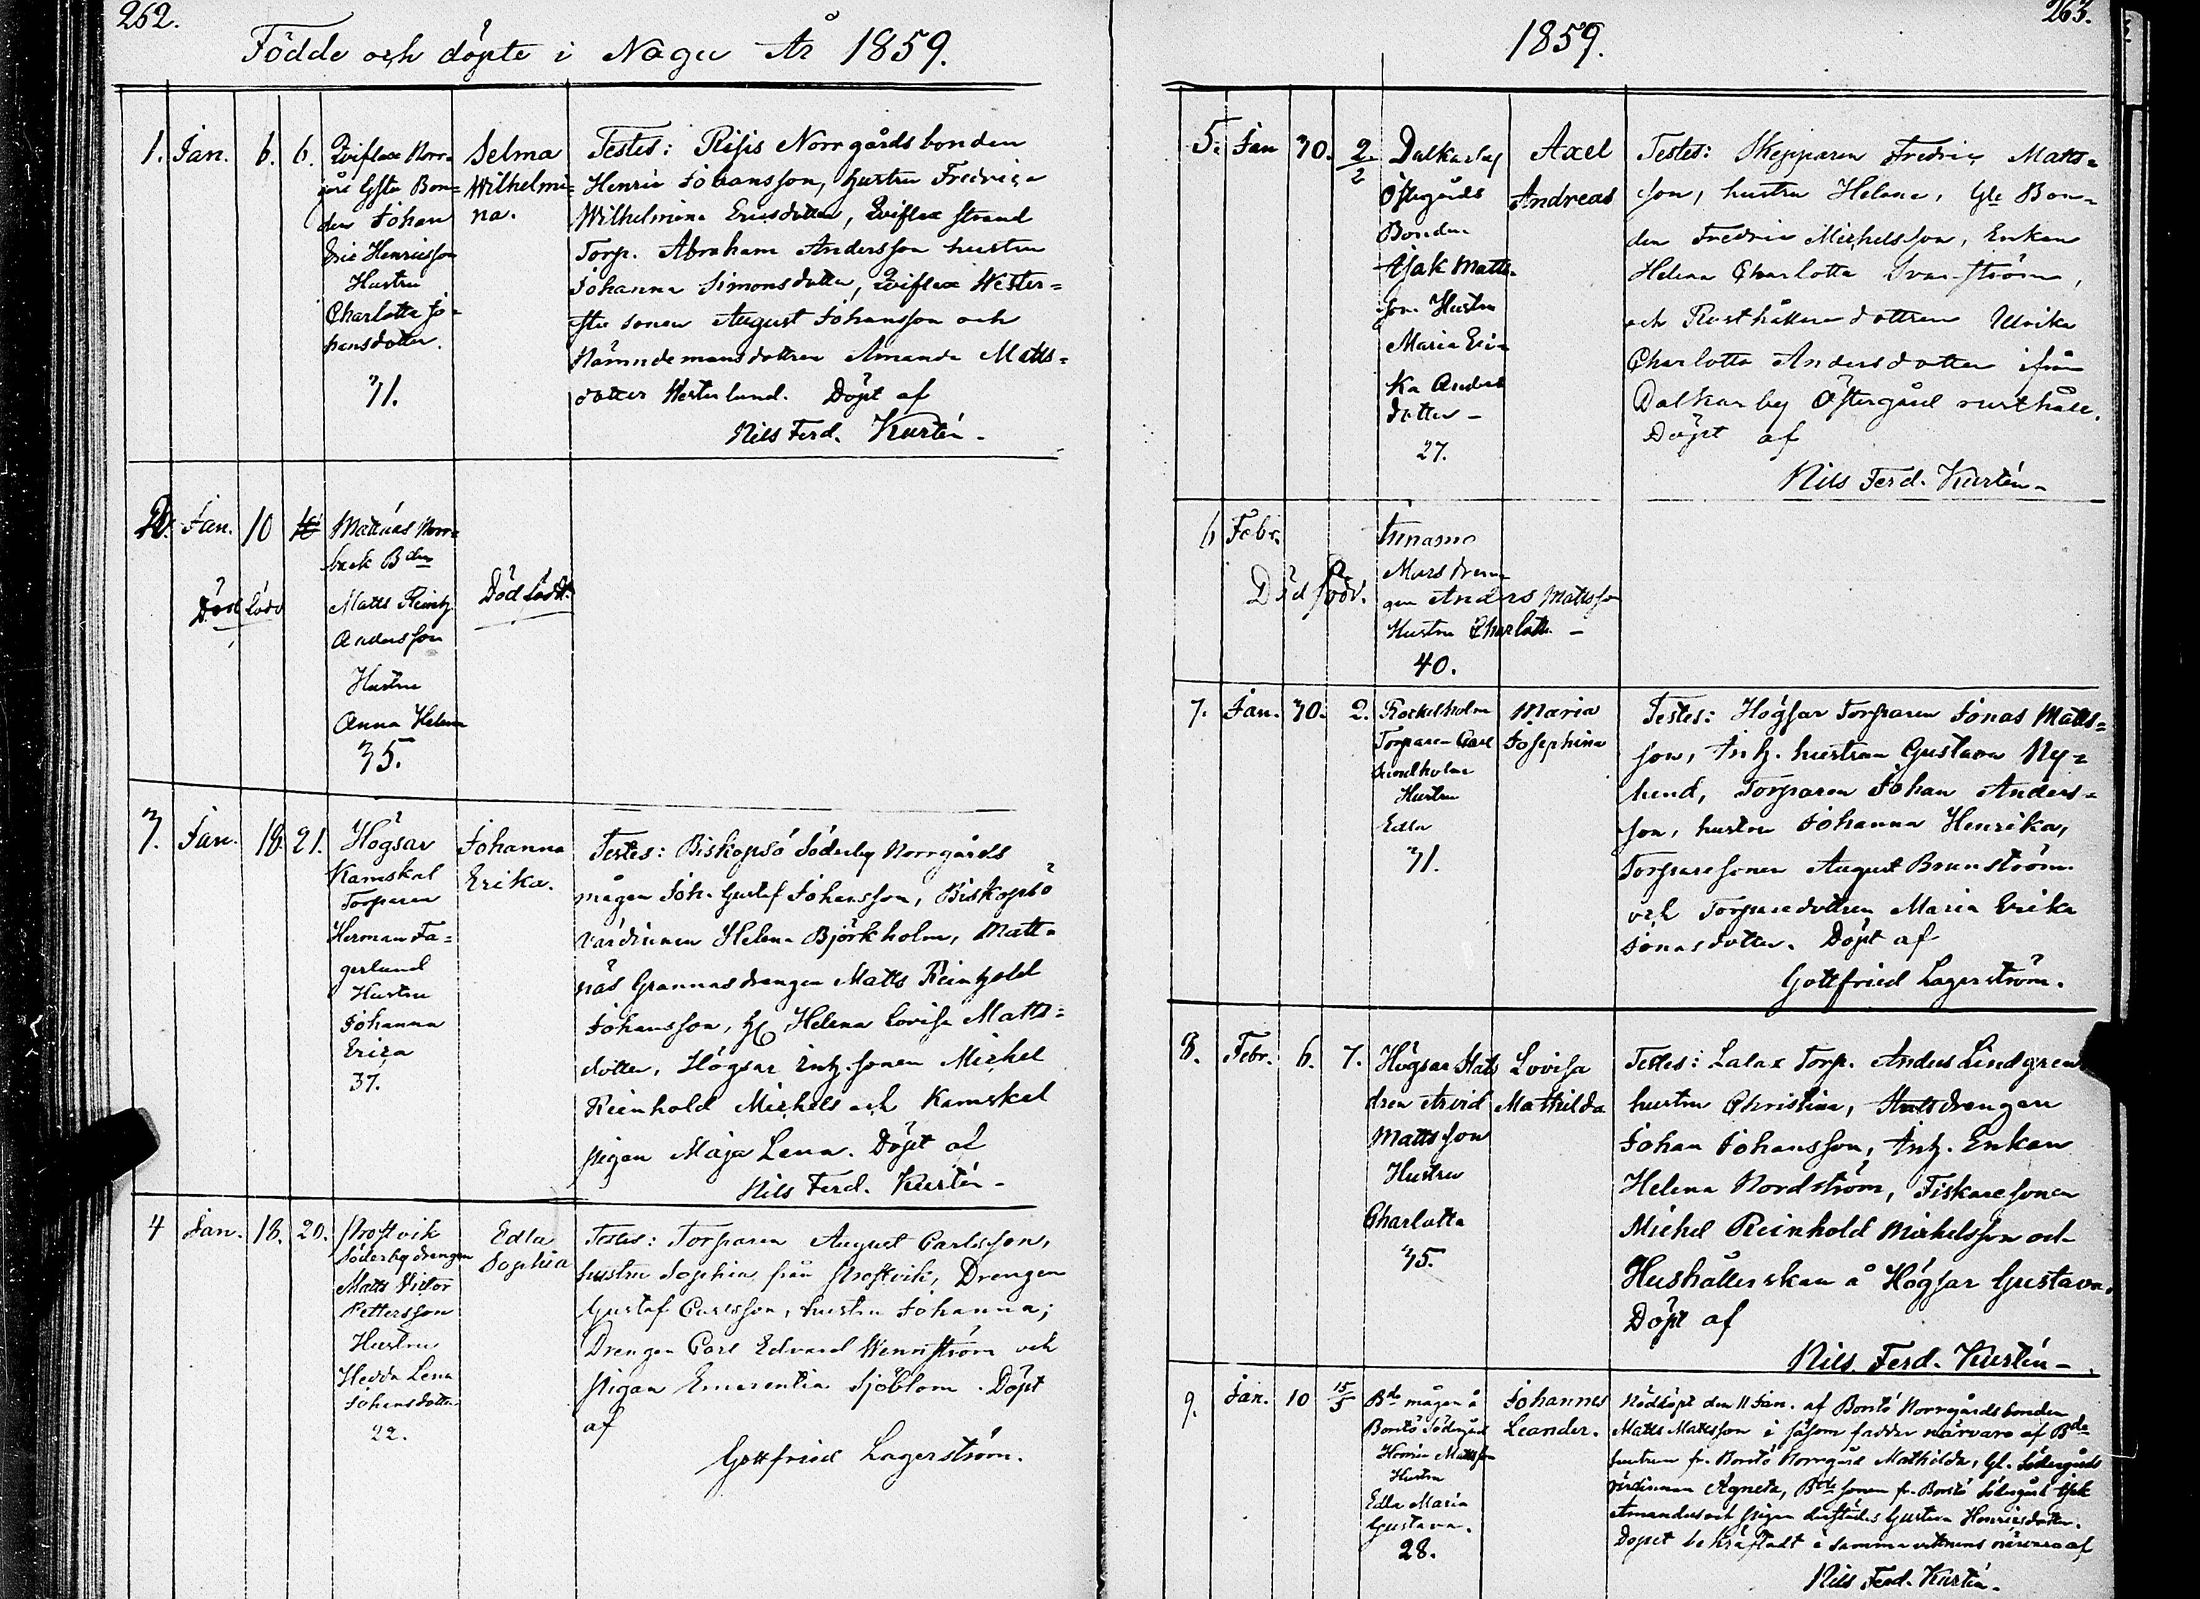 262.
Födde och döpte i Nagu År 1859.
1. Jan. 6. 6.
Qviflax Norr-
gård Gste Bon-
den Johan
Eric Henricsson
Hustru
Charlotta Jo-
hansdotter.
31.
Selma
Wilhelmi-
na.
Testes: Risis Norrgårds bonden
Henric Johansson, hustru Fredrica
Wilhelmina Ericsdotter, Qviflax Strand
Torp. Abraham Andersson hustru
Johanna Simonsdotter, Qviflax Wester-
sonen August Johansson och
Nämndemansdottren Amanda Matts-
dotter Westerlund. Döpt af
Nils Ferd. Kurtén-
2. Jan. 10
Mattnäs Norr-
back Bden
Matts Reinh.
Andersson
Hustru
Anna Helena
35.
Dödfödd
Dödfödt.
3. Jan. 18. 21.
Högsar
Kamskal
Torparen
Herman Fa-
gerlund
Hustru
Johanna
Erica
37.
Johanna
Erika.
Testes: Biskopsö Söderby Norrgårds
mågen Joh. Gustaf Johansson, Biskopsö
värdinnan Helena Björkholm, Matt-
näs Grannasdrengen Matts Reinhold
Johansson, H, Helena Lovisa Matts-
dotter, Högsar Inh. sonen Michel
Reinhold Michels och Kamskal
pigan Maja Lena. Döpt af
Nils Ferd. Kurtén-
4 Jan. 18. 20.
Prostvik
Söderby drengen
Matts Victor
Pettersson
Hustru
Hedda Lena
Johansdotter
22.
Edla
Sophia
Testes: Torparen August Carlsson,
hustru Sophia från Prostvik, Drengen
Gustaf Carlsson, hustru Johanna;
Drengen Carl Edvard Wennström och
pigan Emerentia Sjöblom. Döpt
af
Gottfried Lagerström.
263.
1859.
5. Jan 30. 2/2
Dalkarby
Östergårds
Bonden
Isak Matts-
son Hustru
Maria Eri-
ka Anders
dotter -
27.
Axel
Andreas
Testes: Skepparen Fredric Matts-
son, hustru Helena, Gle Bon-
den Fredric Michelsson, Enkan
Helena Charlotta Svanström,
och Rusthållare dottren Ulrika
Charlotta Andersdotter ifrån
Dalkarby Östergård rusthåll.
Döpt af
Nils Ferd. Kurtén-
6 Febr.
Död född.
Anders Mattsson
Hustru Charlotta -
40.
7. Jan. 30. 2.
Rockelholm
Torparen Carl
Hustru
Edla
31.
Maria
Josephina
Testes: Högsar Torparen Jonas Matts-
son, Inh. hustrun Gustava Ny-
lund, Torparen Johan Anders-
son, hustru Johanna Henrika,
Torparesonen August Brunström
och Torparedottren Maria Erika
Jonasdotter. Döpt af
Gottfried Lagerström.
8. Febr. 6. 7.
Högsar Stats
dren Arvid
Mattsson
Hustru
Charlotta
35.
Lovisa
Mathilda
Testes: Lalax Torp. Anders Lindgren
hustru Christina, Statsdrengen
Johan Johansson, Inh. Enkan
Helena Nordström, Fiskaresonen
Michel Reinhold Michelsson och
Hushållerskan å Högsar Gustava.
Döpt af
Nils Ferd. Kurtén-
9. Jan. 10 15/5
Bde mågen å
Borstö Södergård
Henric Mattsson
Hustru
Edla Maria
Gustava.
28.
Johannes
Leander.
Nöddöpt den 11 Jan. af Borstö Norrgårds bonden
Matts Mattsson i såsom faddrar närvaro af Bde
hustrun fr. Borstö Norrgård Mathilda, Gl. Södergårds
värdinnan Agneta, Bde sonen fr. Borstö Södergård Isak
Amandus och pigan derstädes Gustava Henricsdotter.
Dopet bekräftadt i samma vittnens närvaro af
Nils Ferd. Kurtén-